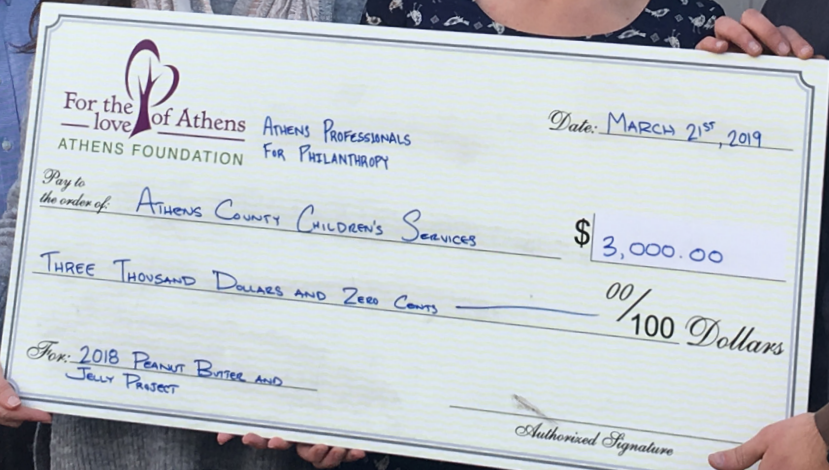 For the love of Athens
ATHENS FOUNDATION
ATHENS PROFESSIONALS
FOR PHILANTHROPY
Date: MARCH 21ST, 2019
Pay to
the order of: ATHENS COUNTY CHILDREN'S SERVICES
$ 3,000.00
THREE THOUSAND DOLLARS AND ZERO CENTS
00/100 Dollars
For: 2018 PEANUT BUTTER AND
JELLY PROJECT
Authorized Signature